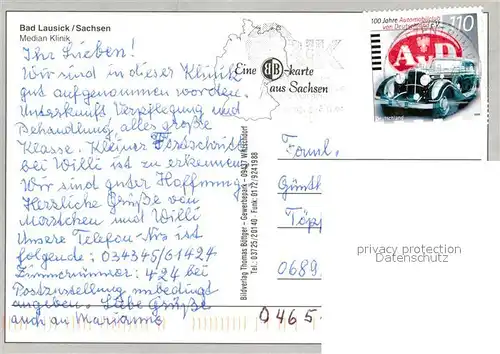 Bad Lausick / Sachsen
Median Klinik
Ihr Lieben!
Wir sind in dieser Klinik
gut aufgenommen worden.
Unterkunft Verpflegung und
Behandlung, alles große
Klasse. Kleiner Fortschritt
bei Willi ist zu erkennen
Wir sind guter Hoffnung
Herzliche Grüße von
und Willi
Unsere Telefon-Nr is ist
folgende: 034345/61424
Zimmernummer: 424 bei
Postzustellung unbedingt
angeben. Liebe Grüße
auch an Marianne
Bildverlag Thomas Böttger - Gewerbepark - 09437 Witzschdorf
Tel.: 03725/20140 · Funk: 0172/9241988
Eine BB-karte
aus Sachsen
100 Jahre Automobilclub
von Deutschland e.V.
110
AvD
Deutschland
Faml.
Günth
Töpp
0689
0465
privacy protection
Datenschutz